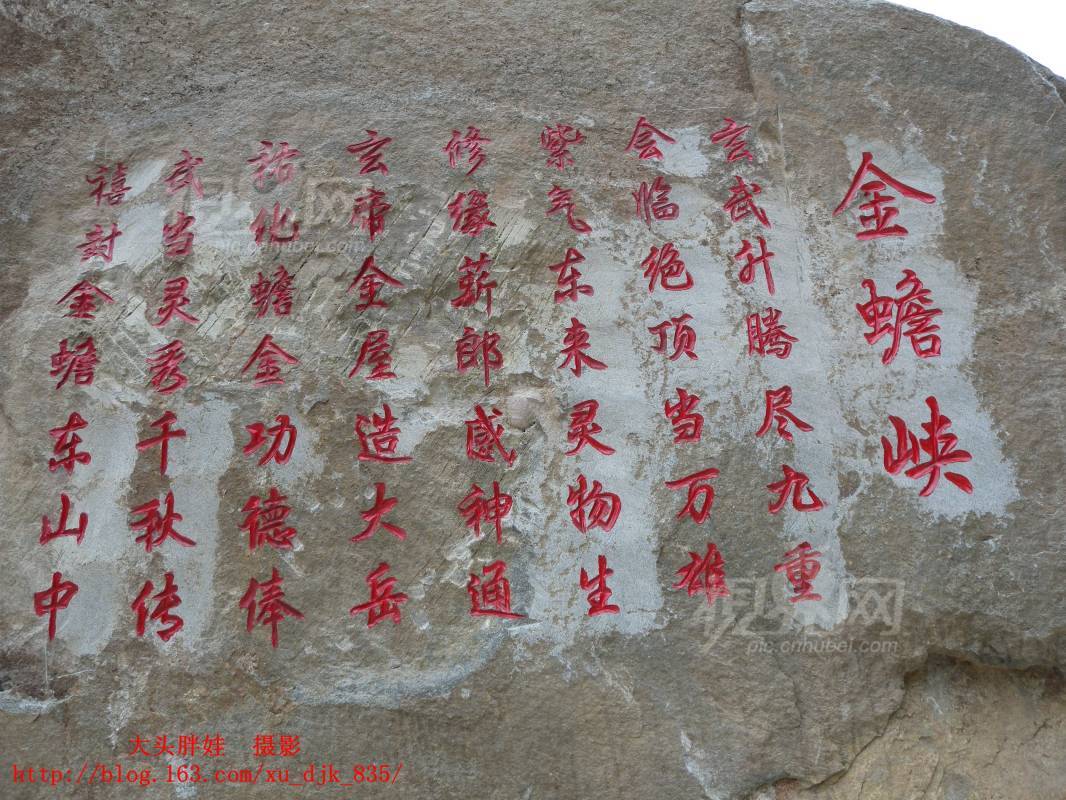 金蟾峡
玄武升腾尽九重
会临绝顶当万雄
紫气东来灵物生
修缘薪郎感神通
玄帝金屋造大岳
祜化蟾金功德俸
武当灵秀千秋传
禧封金蟾东山中
pic.cnhubei.com
pic.cnhubei.com
大头胖娃 摄影
http://blog.163.com/xu_djk_835/